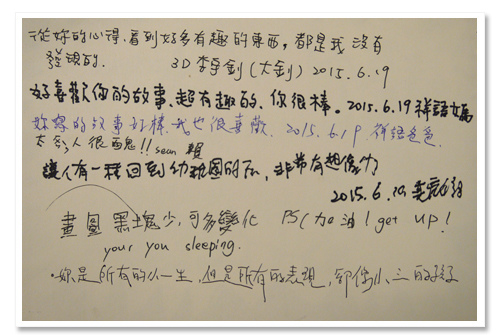 從妳的心得,看到好多有趣的東西,都是我沒有
發現的. 3D 李宇釗(大釗) 2015.6.19
好喜歡你的故事、超有趣的、你很棒。2015.6.19 祥語媽
妳寫的故事好棒,我也很喜歡. 2015.619. 祥語爸爸.
人很酷!! sean
讓人有一種回到幼稚園的 非常有想像力
2015.6.
畫圖 黑塊少,可多變化 PS(加油! get up!
your you sleeping.
妳是所有的小一生,但是所有的表現,都像小三的孩子